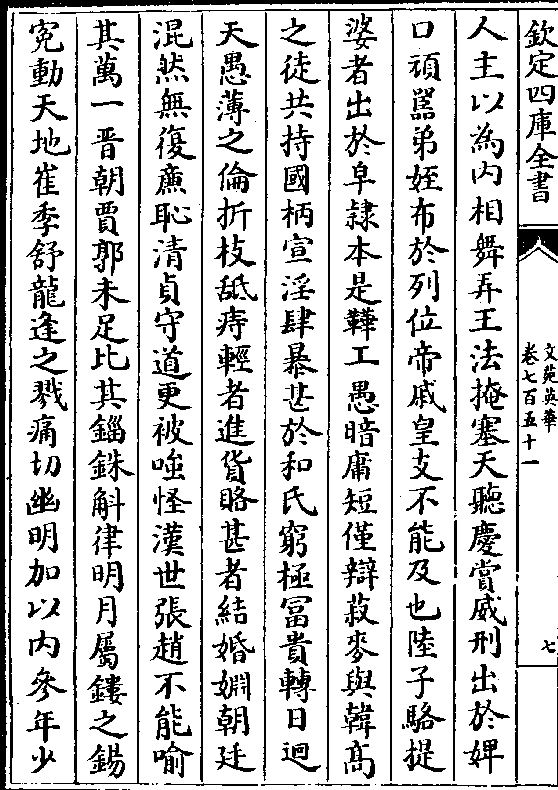 欽定四庫全書
文苑英華
卷七百五十一
七
人主以為内相舞弄王法掩塞天聽慶賞威刑出於婢
口頑嚚弟姪布於列位帝戚皇支不能及也陸子駱提
婆者出於皁隸本是韡工愚暗庸短僅辯菽麥與韓髙
之徒共持國柄宣淫肆暴甚於和氏窮極冨貴轉日迴
天愚薄之倫折枝舐痔輕者進貨賂甚者結婚婣朝廷
混然無復亷恥清貞守道更被嗤怪漢世張趙不能喻
其萬一晋朝賈郭未足比其錙銖斛律明月屬鏤之錫
寃動天地崔季舒龍逢之戮痛切幽明加以内參年少